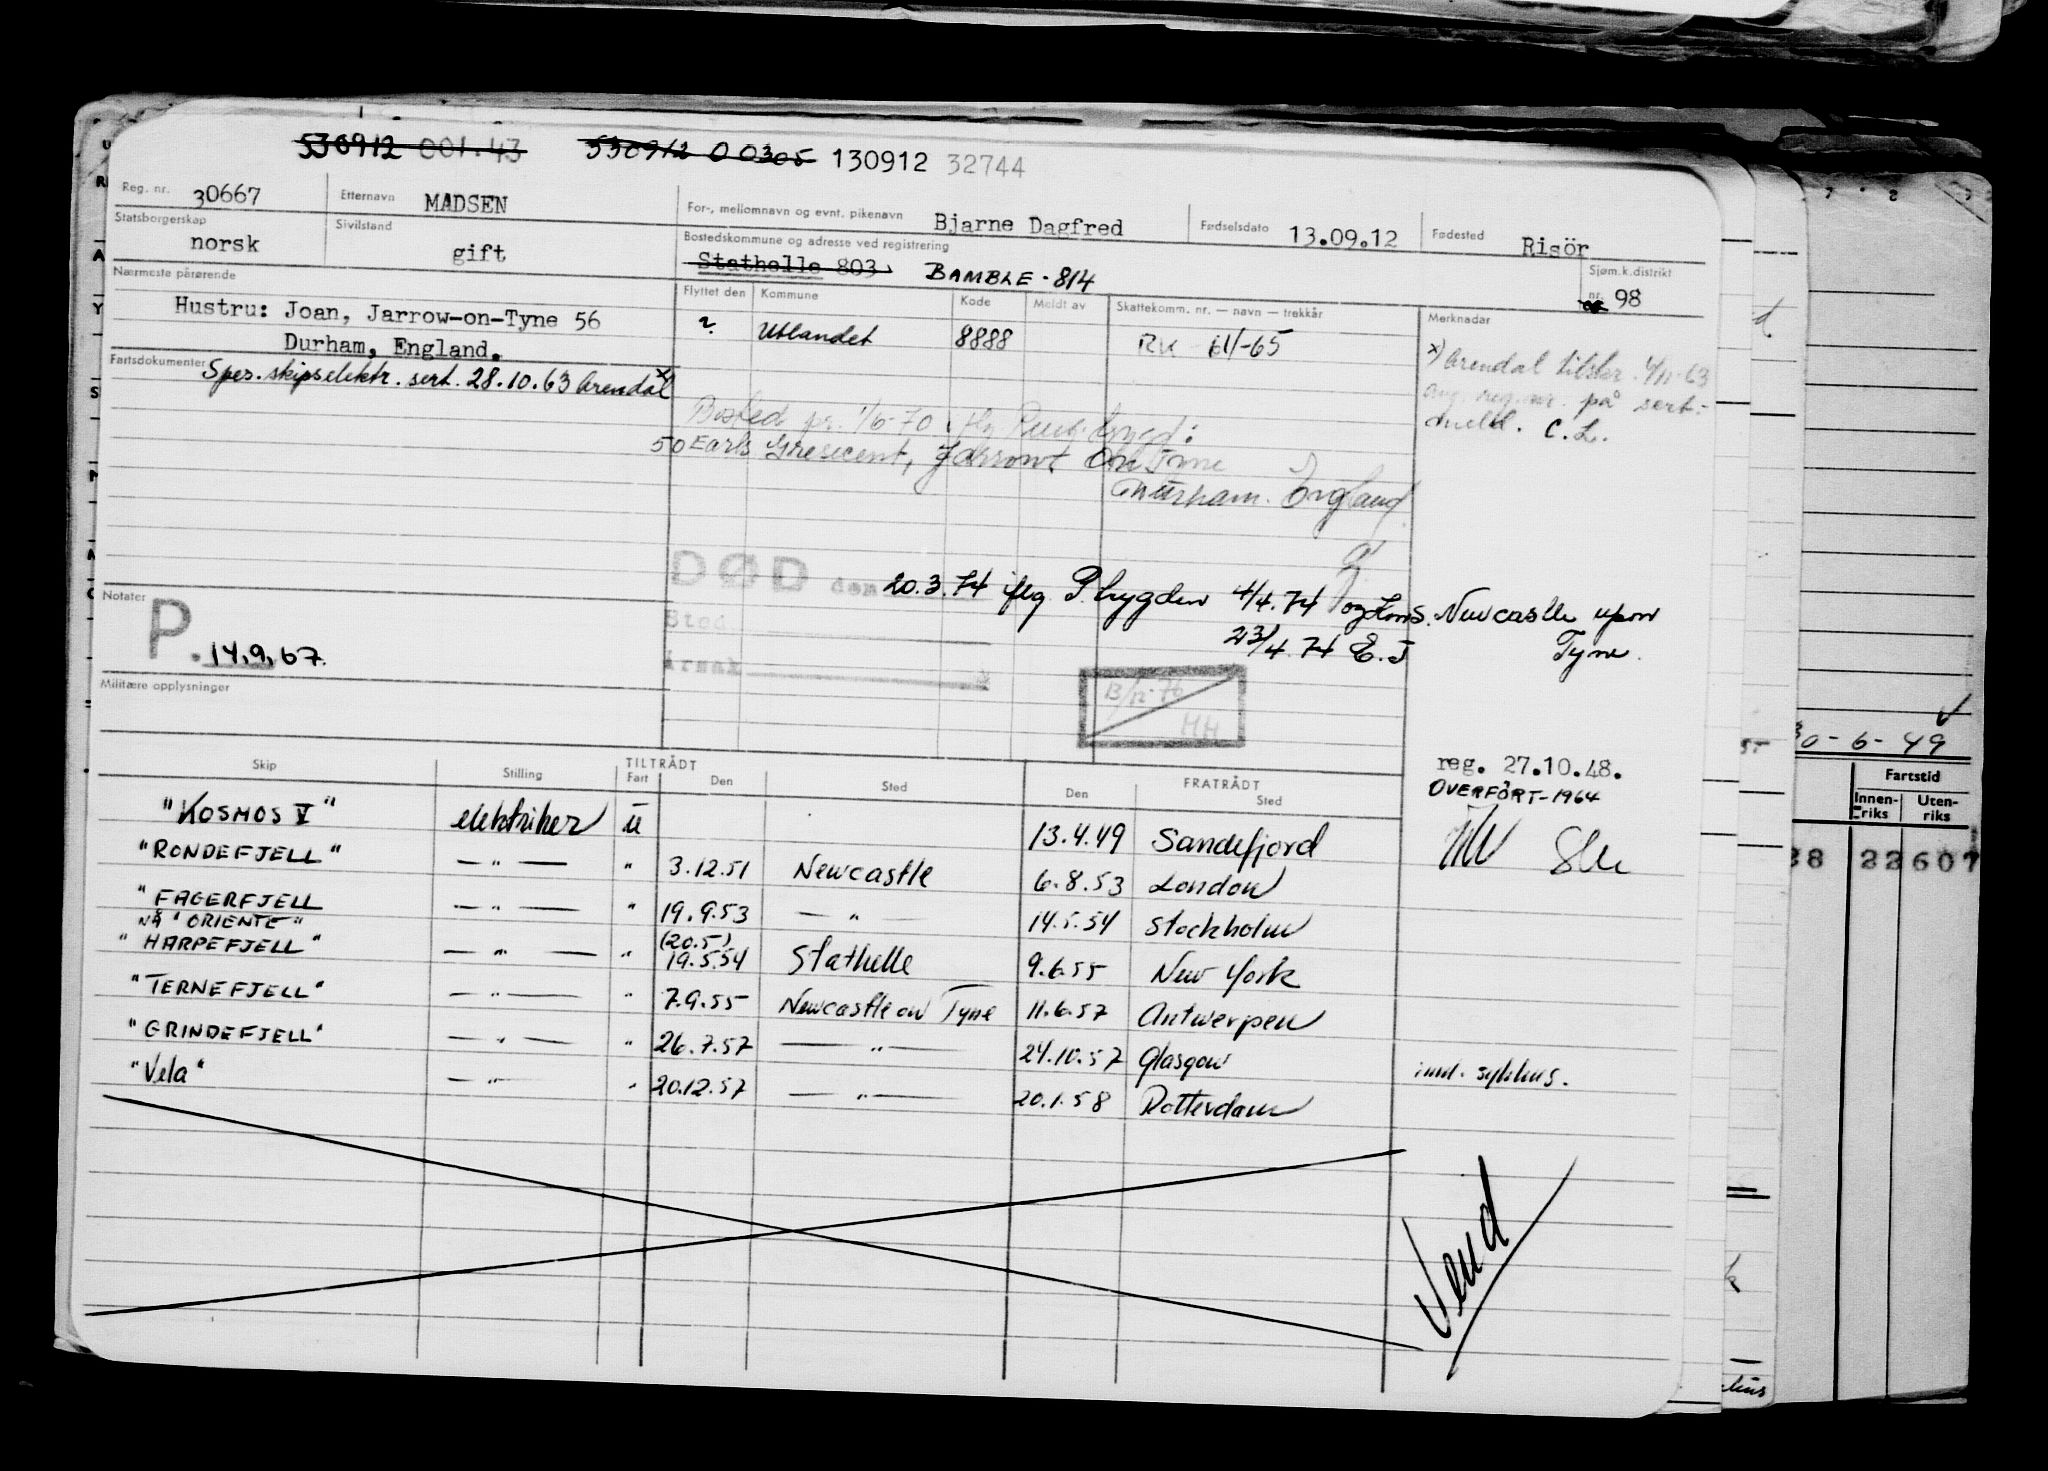 530912 001.43 530912 00305 130912 32744
Reg. nr. 30667 Etternavn MADSEN For-, mellomnavn og evnt. pikenavn Bjarne Dagfred Fødselsdato 13.09.12 Fødested Risör
Statsborgerskap norsk Sivilstand gift Bostedskommune og adresse ved registrering Stathelle 803 BAMBLE - 814 Sjøm.k.distrikt nr. 98
Nærmeste pårørende
Hustru: Joan, Jarrow-on-Tyne 56
Durham, England.
Flyttet den Kommune Kode Meldt av Skattekomm. nr. — navn — trekkår Merknader
Utlandet 8888 RK 61/-65
Fartsdokumenter Spes. skipselektr. sert. 28.10.63 Arendal x)
x) Arendal 4/11-63
reg. nr. på sert.-
meld. C.L.
Bosted pr. 1/6-70
50 Earls Gresecent, On Tyne
Durham. England
DØD den 20.3.74 iflg P. trygden 4/4.74 og Kons. Newcastle upon
Sted 23/4.74 E.J Tyne.
Årsak
Notater
P. 14,9,67.
B/12-76
HH
Militære opplysninger
reg. 27.10.48.
OVERFÖRT-1964
Skip Stilling TILTRÅDT Fart Den Sted FRATRÅDT Den Sted
"KOSMOS V" elektriker U 13.4.49 Sandefjord
"RONDEFJELL" — " — " 3.12.51 Newcastle 6.8.53 London
"FAGERFJELL — " — " 19.9.53 — " 14.5.54 Stockholm
NÅ "ORIENTE"
"HARPEFJELL" — " — " (20.5) 19.5.54 Stathelle 9.6.55 New York
"TERNEFJELL" — " — " 7.9.55 Newcastle on Tyne 11.6.57 Antwerpen
"GRINDEFJELL" — " — " 26.7.57 — " — 24.10.57 Glasgow innl. sykehus.
"Vela" — " — " 20.12.57 — " — 20.1.58 Rotterdam
Vend
30-6-49
Fartstid
Innen-riks Uten-riks
38 22 607